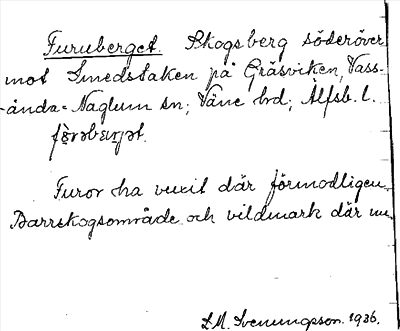 Furuberget. Skogsberg söderöver
mot Smedstaken på Gräsviken, Vass-
ända-Naglum sn; Väne hd; Älfsb. l.
Furor ha vuxit där förmodligen.
Barrskogsområde och vildmark där nu.
L.M. Svenungsson. 1936.